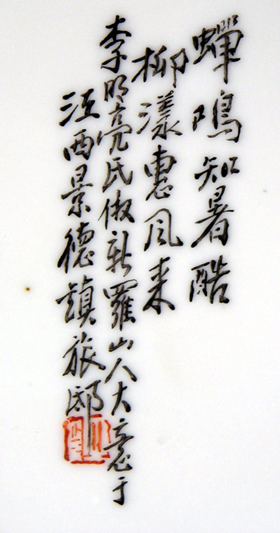 蟬鳴知暑酷
柳漾惠风来
李明亮氏倣新羅山人大意于
江西景德鎮旅邸